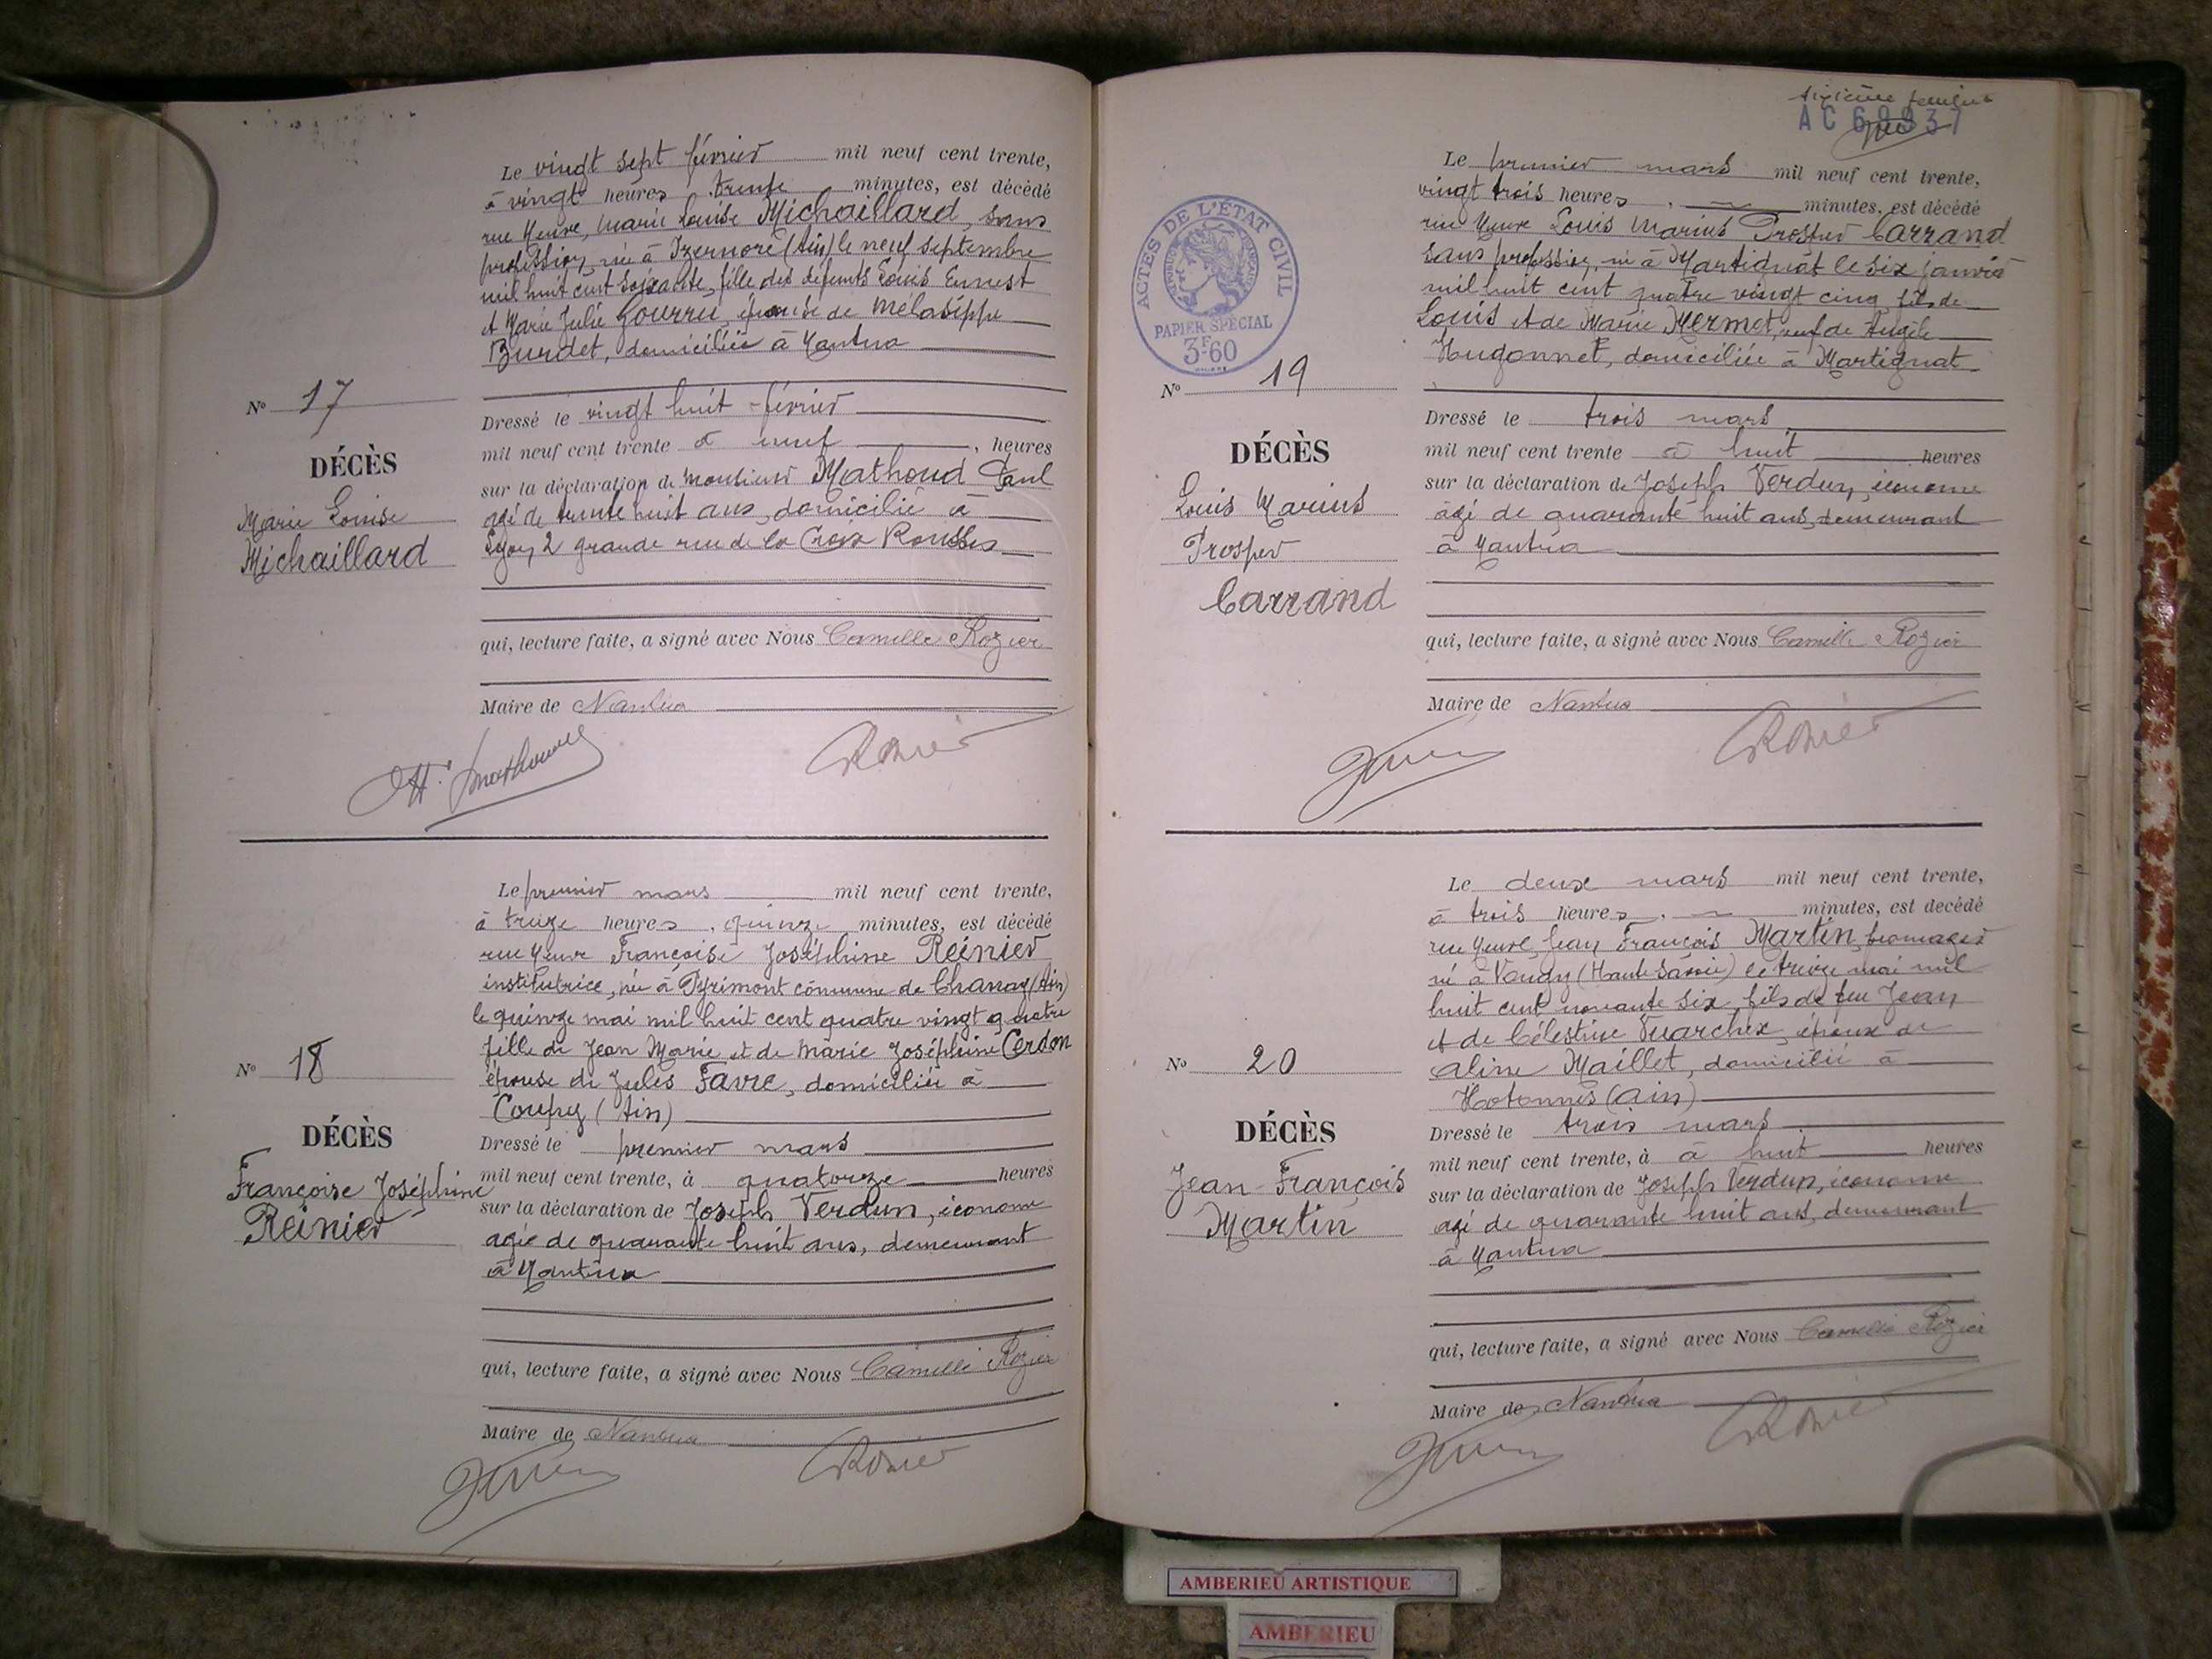 Le vingt sept février mil neuf cent trente,
à vingt heures trente minutes, est décédé
rue Neuve, Marie Louise Michaillard, sans
profession, née à Izernore (Ain) le neuf septembre
mil huit cent soixante, fille des défunts Louis Ernest
et Marie Julie Gourru, épouse de Mélasippe
Burdet, domiciliée à Nantua
N° 17
DÉCÈS
Marie Louise
Michaillard
Dressé le vingt huit février
mil neuf cent trente à neuf, heures
sur la déclaration de monsieur Mathoud Paul
agé de trente huit ans, domicilié à
Lyon, 2 grande rue de la Croix Rousse
qui, lecture faite, a signé avec Nous Camille Rozier
Maire de Nantua
Rozier
Le premier mars mil neuf cent trente,
à treize heures, quinze minutes, est décédé
rue Neuve Françoise Joséphine Reinier
institutrice, née à Pyrimont commune de Chanay (Ain)
le quinze mai mil huit cent quatre vingt quatre
fille de Jean Marie et de Marie Joséphine Cerdon
épouse de Jules Favre, domiciliée à
Coupy (Ain)
N° 18
DÉCÈS
Françoise Joséphine
Reinier
Dressé le premier mars
mil neuf cent trente, à quatorze heures
sur la déclaration de Joseph Verdun, économe
agé de quarante huit ans, demeurant
à Nantua
qui, lecture faite, a signé avec Nous Camille Rozier
Maire de Nantua
Rozier
AC 69937
Le premier mars mil neuf cent trente,
vingt trois heures, minutes, est décédé
rue Neuve Louis Marius Prosper Carrand
sans profession, né à Martignat le six janvier
mil huit cent quatre vingt cinq, fils de
Louis et de Marie Mermet, veuf de Angèle
Hugonnet, domiciliée à Martignat
ACTES DE L'ÉTAT CIVIL
PAPIER SPÉCIAL
3F60
N° 19
DÉCÈS
Louis Marius
Prosper
Carrand
Dressé le trois mars
mil neuf cent trente à huit heures
sur la déclaration de Joseph Verdun, économe
âgé de quarante huit ans, demeurant
à Nantua
qui, lecture faite, a signé avec Nous Camille Rozier
Maire de Nantua
Rozier
Le deux mars mil neuf cent trente,
à trois heures, minutes, est décédé
rue Neuve, Jean François Martin, fromager
né à Vougy (Haute Savoie) le treize mai mil
huit cent nonante six, fils de feu Jean
et de Célestine Vuarchex, époux de
Aline Maillet, domicilié à
Hotonnes (Ain)
N° 20
DÉCÈS
Jean-François
Martin
Dressé le trois mars
mil neuf cent trente, à à huit heures
sur la déclaration de Joseph Verdun, économe
agé de quarante huit ans, demeurant
à Nantua
qui, lecture faite, a signé avec Nous Camille Rozier
Maire de Nantua
Rozier
AMBERIEU ARTISTIQUE
AMBERIEU